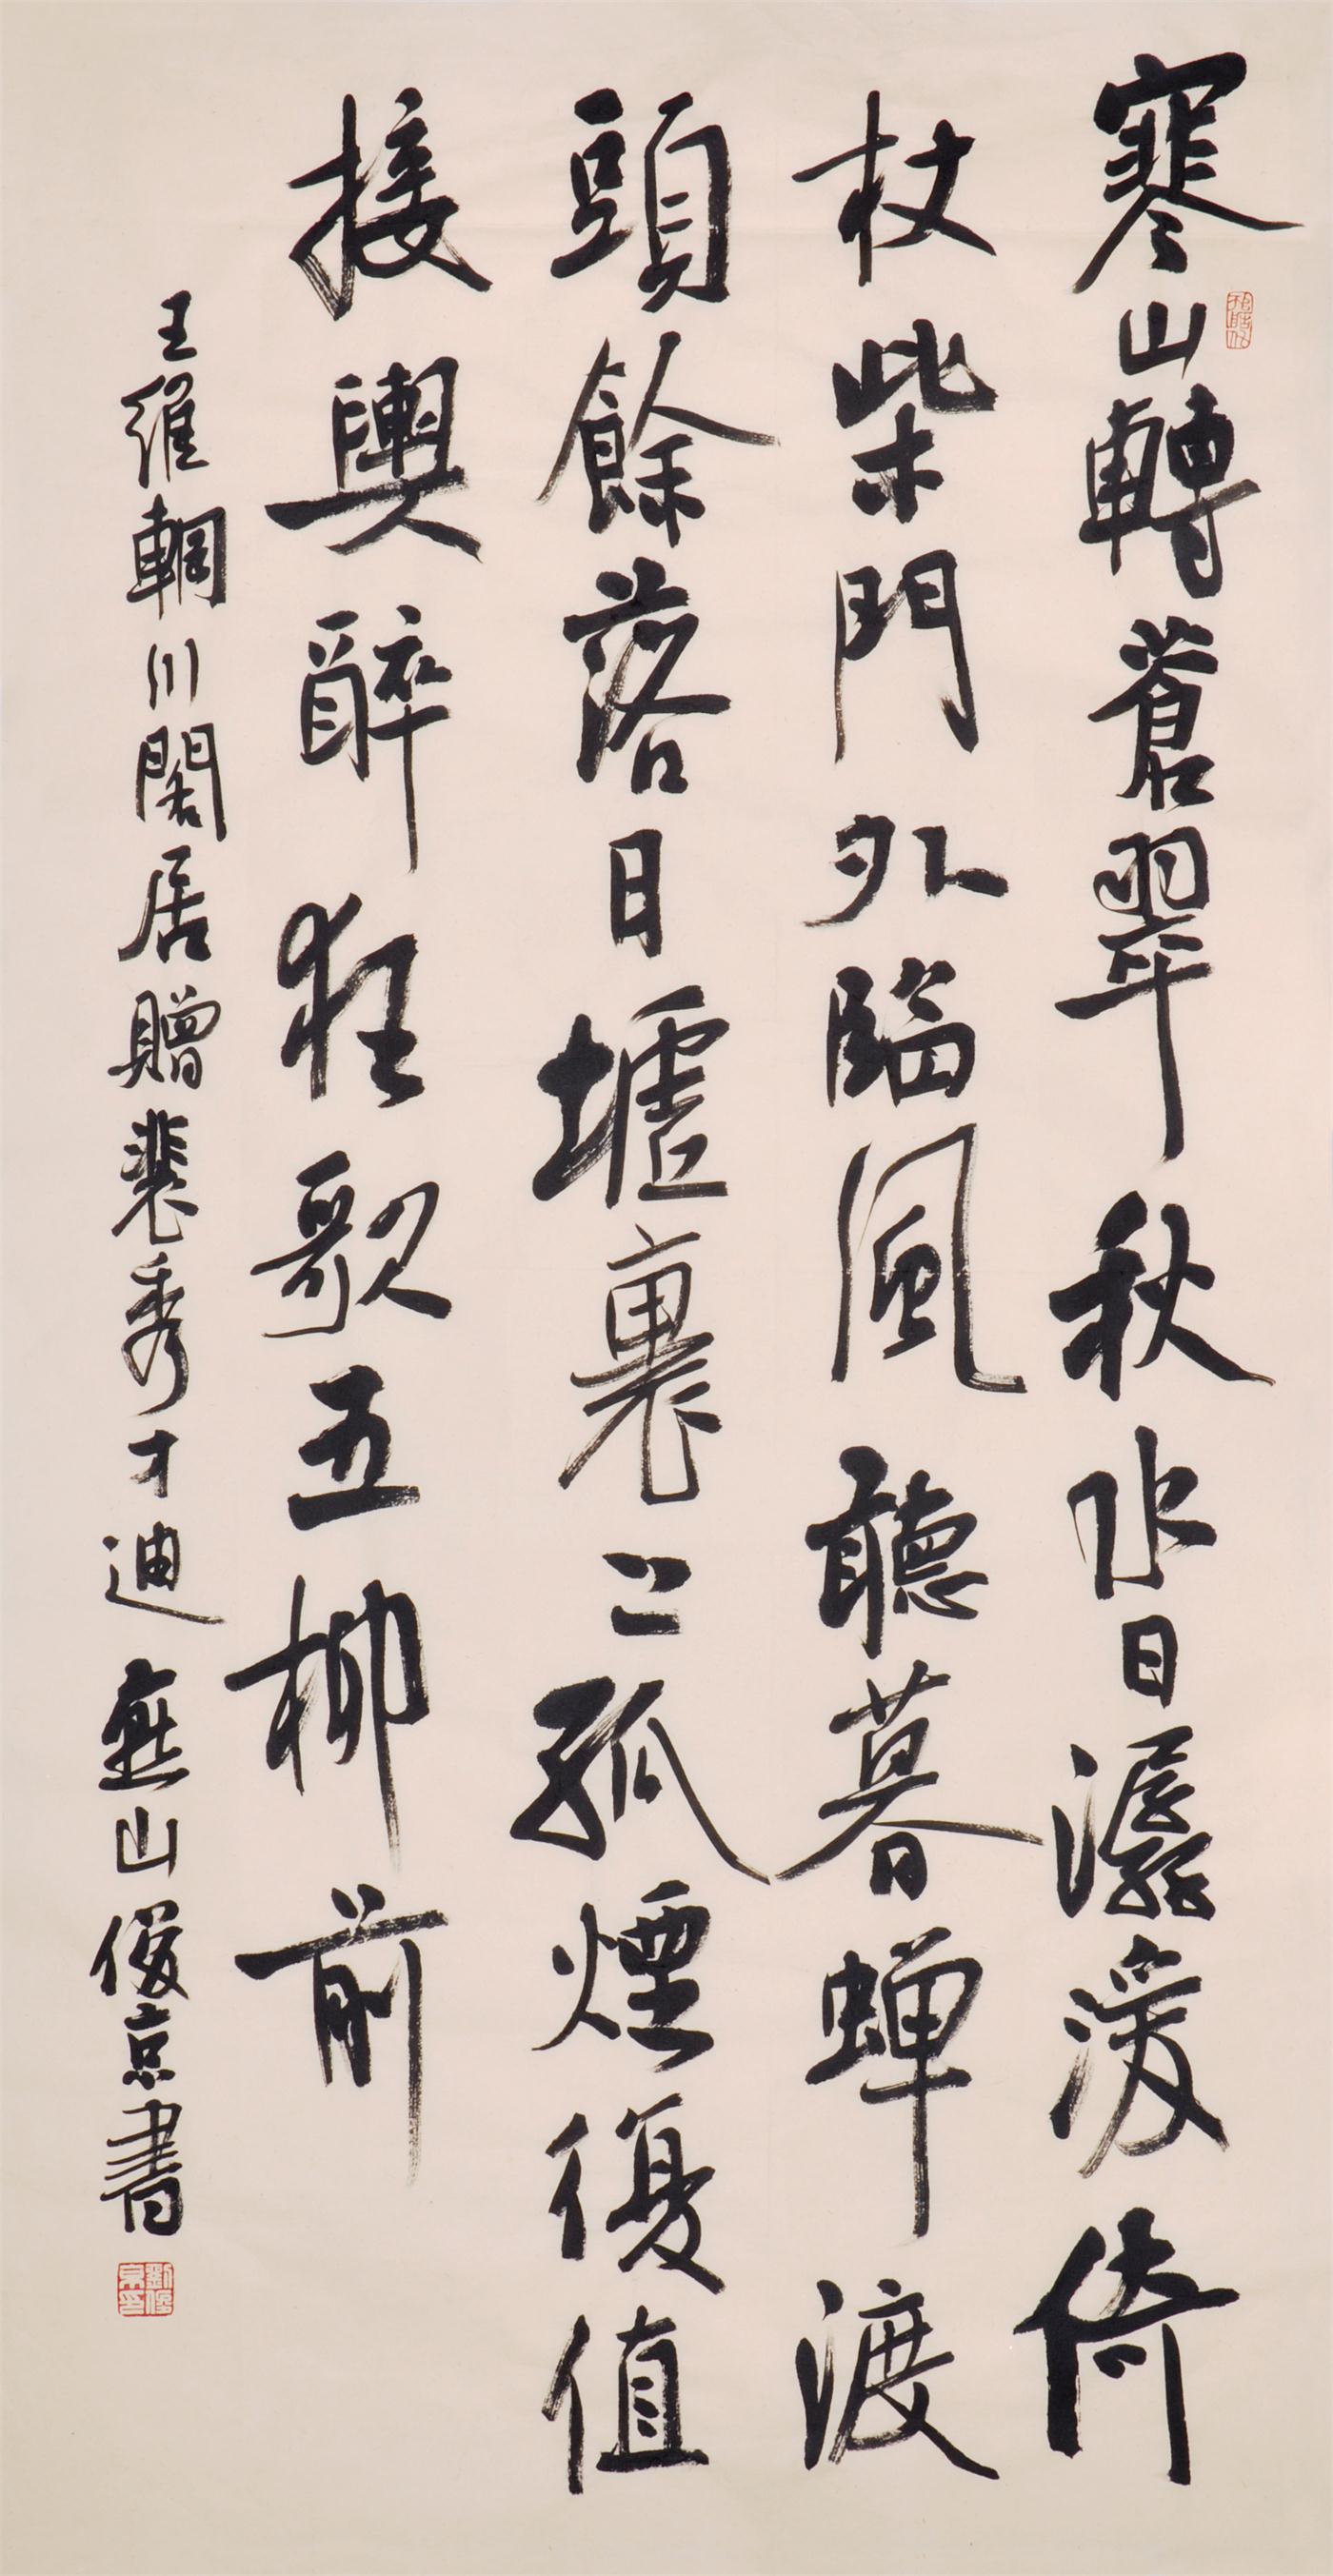 寒山轉蒼翠秋水日潺湲倚
杖柴門外臨風聽暮蝉渡
頭餘落日墟裏上孤煙復值
接輿醉狂歌五柳前
王維輞川閒居贈裴秀才迪 山俊京書
劉俊京印